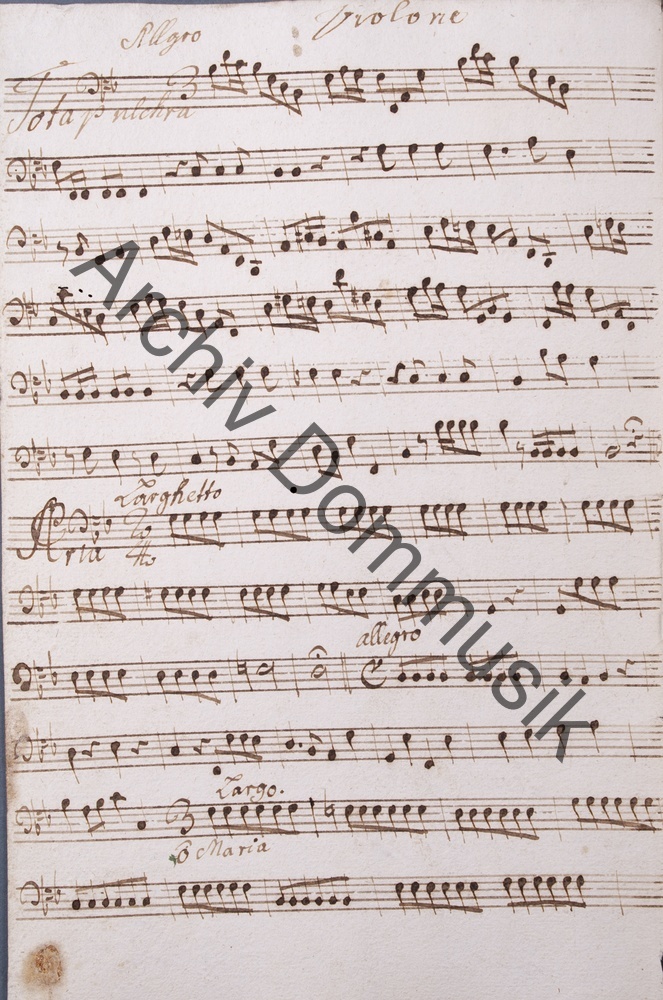 Violone
Allegro
Tota pulchra
Larghetto
Aria
allegro
Largo.
O Maria
Archiv Dommusik